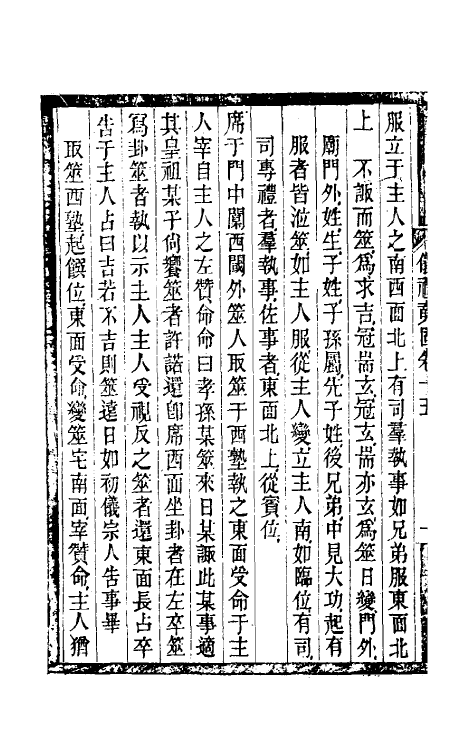 服立于主人之南西面北上有司羣執事如兄弟服東面北
上　不諏而筮爲求吉冠端玄冠玄端亦玄爲筮日變門外
廟門外姓生子姓子孫屬先子姓後兄弟中見大功起有
服者皆涖筮如主人服從主人變立主人南如臨位有司
司專禮者羣執事佐事者東面北上從賓位
席于門中闑西閾外筮人取筮于西塾執之東面受命于主
人宰自主人之左贊命命曰孝孫某筮來日某諏此某事適
其皇祖某子尚饗筮者許諾還卽席西面坐卦者在左卒筮
寫卦筮者執以示主人主人受視反之筮者還東面長占卒
告于主人占曰吉若不吉則筮遠日如初儀宗人告事畢
取筮西塾起饌位東面受命變筮宅南面宰贊命主人猶
儀禮
卷十五
一